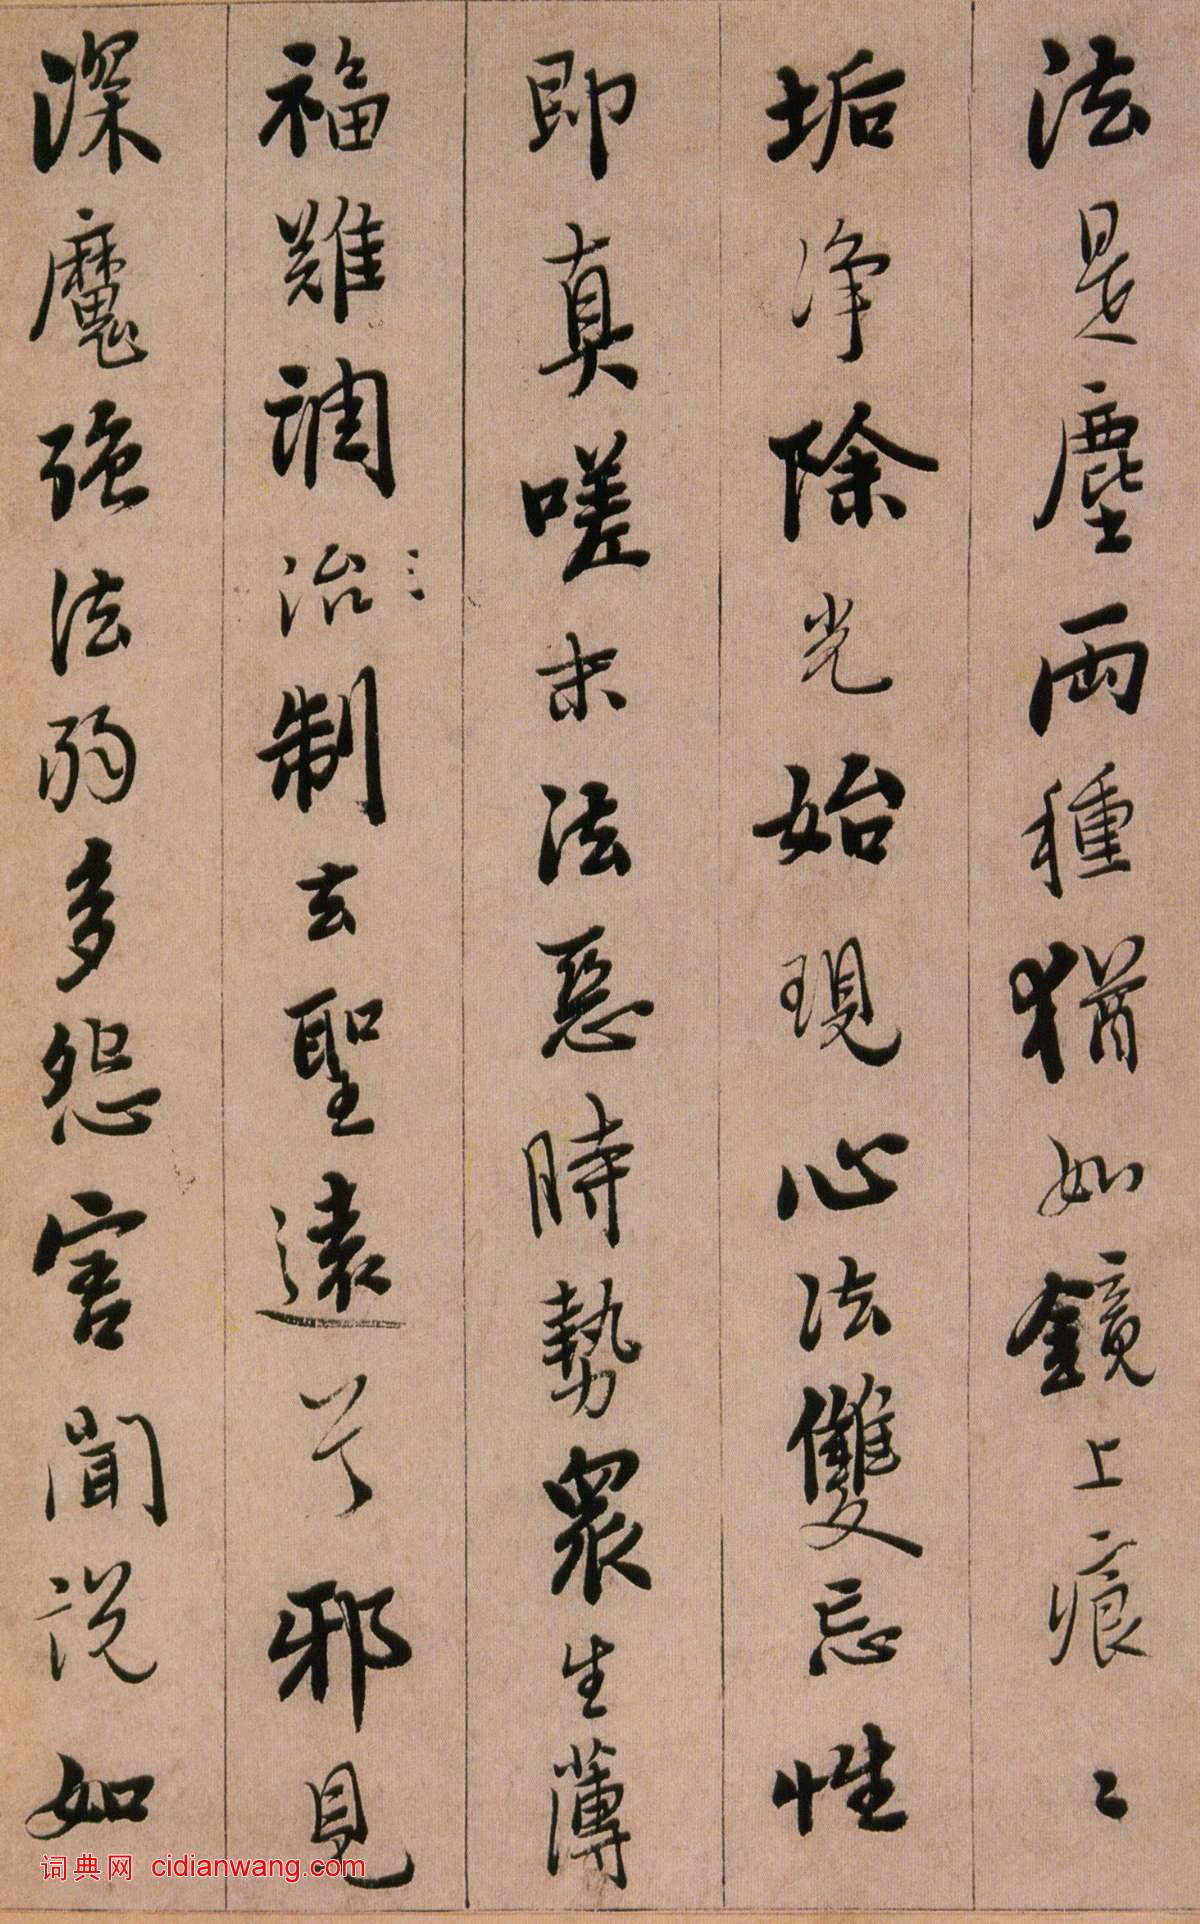 法是塵兩種猶如鏡上痕〻
垢淨除光始現心法雙忘性
即真嗟末法惡時勢衆生薄
福難調治制去聖遠兮邪見
深魔強法弱多怨害聞說如
词典网 cidianwang.com